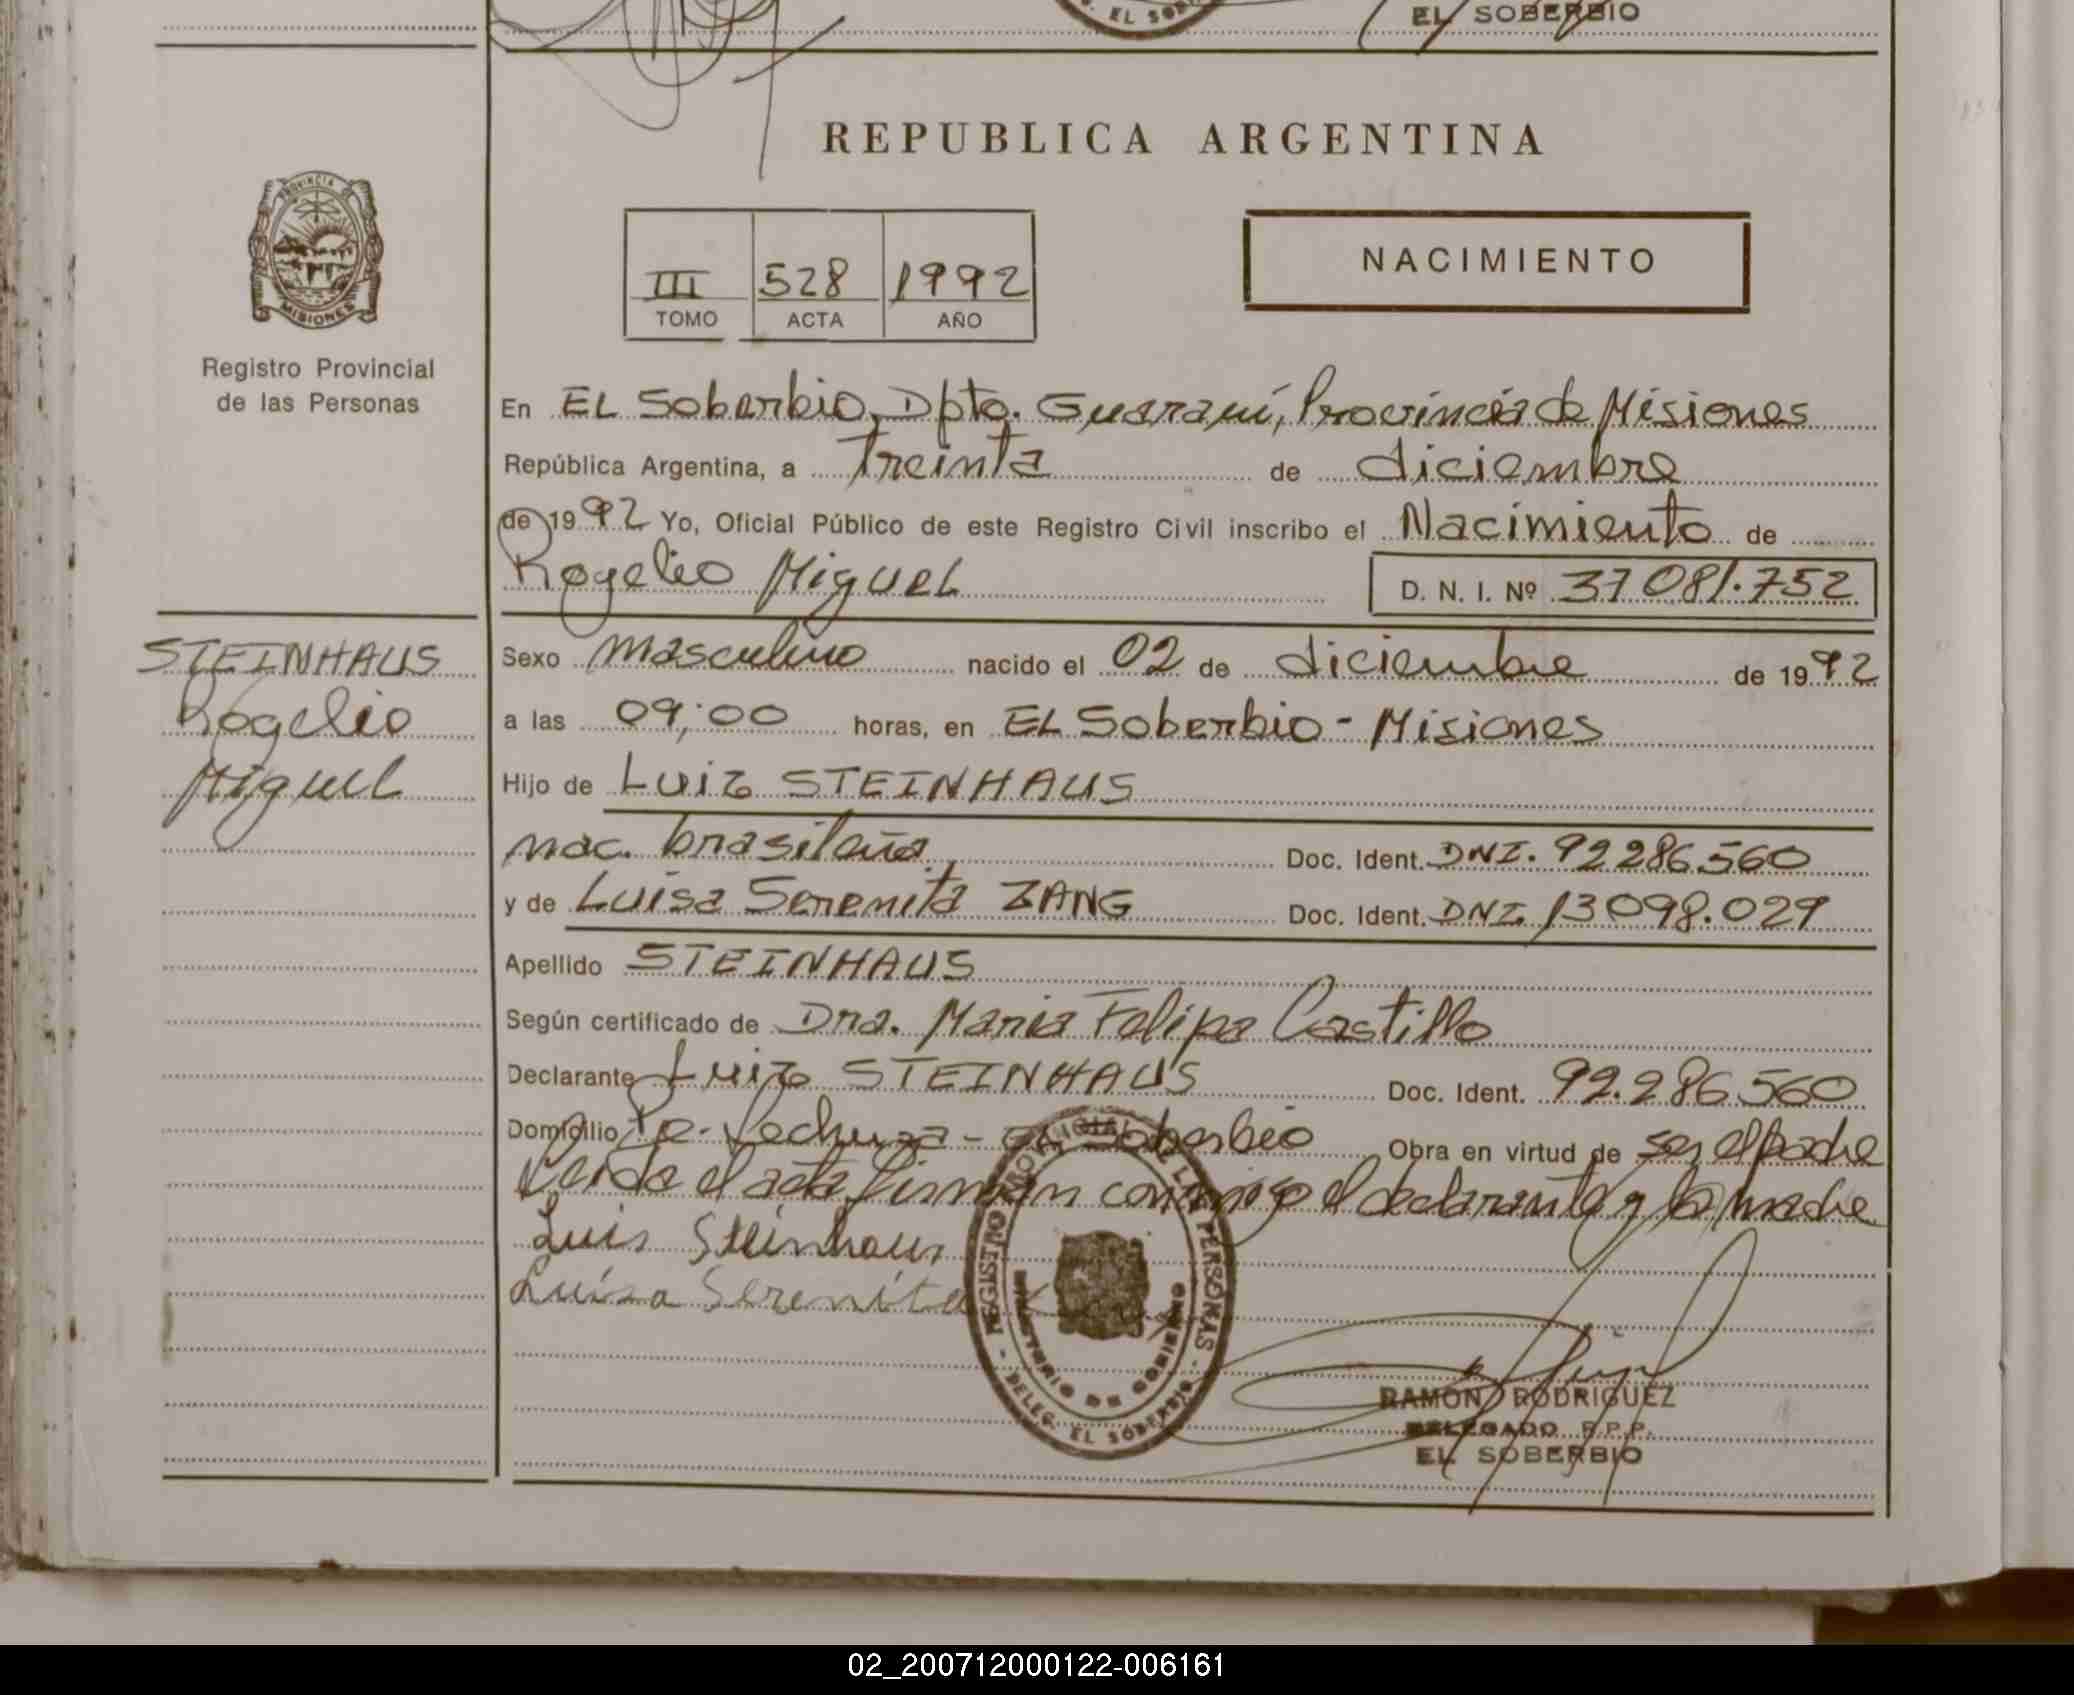 EL SOBERBIO
REPUBLICA ARGENTINA
PROVINCIA DE
MISIONES
Registro Provincial
de las Personas
III 528 1992
TOMO ACTA AÑO
NACIMIENTO
En EL Soberbio, Dpto. Guaraní, Provincia de Misiones
República Argentina, a Treinta de diciembre
de 1992 Yo, Oficial Público de este Registro Civil inscribo el Nacimiento de
Rogelio Miguel
D. N. I. Nº 37081.752
STEINHAUS
Rogelio
Miguel
Sexo masculino nacido el 02 de diciembre de 1992
a las 09;00 horas, en EL Soberbio - Misiones
Hijo de Luiz STEINHAUS
nac. brasileña Doc. Ident. DNI. 92286560
y de Luisa Serenita ZANG Doc. Ident. DNI. 13098.029
Apellido STEINHAUS
Según certificado de Dra. Maria Felipa Castillo
Declarante Luiz STEINHAUS Doc. Ident. 92.286560
Domicilio Pje. Lechuza - EL Soberbio Obra en virtud de ser el padre
Leida el acta firman conmigo el declarante y la madre
Luis Steinhaus
Luísa Serenita
REGISTRO PROVINCIAL DE LAS PERSONAS
MINISTERIO DE GOBIERNO
DELEG. EL SOBERBIO
RAMON RODRIGUEZ
DELEGADO R.P.P.
EL SOBERBIO
02_200712000122-006161